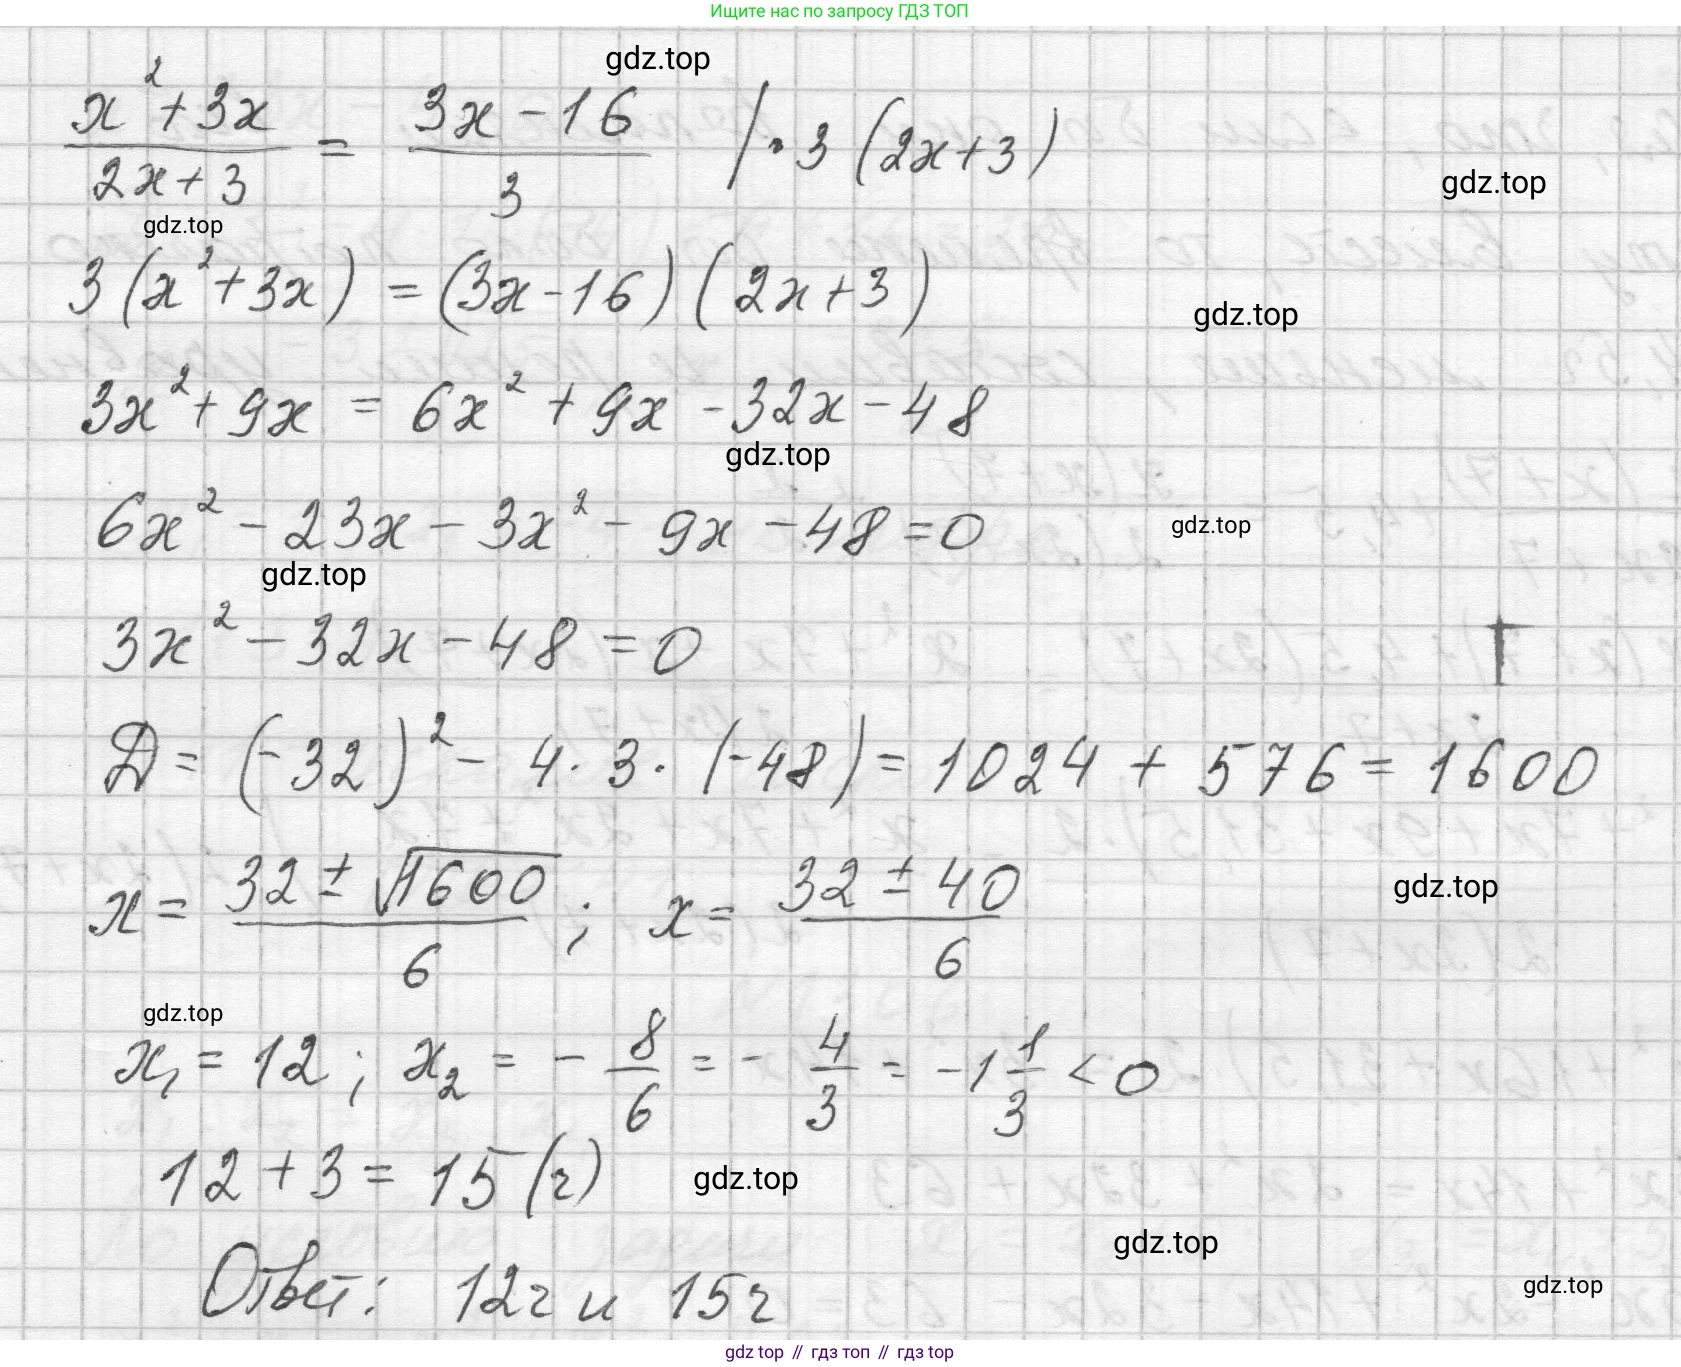 Ищите нас по запросу ГДЗ ТОП
gdz.top
x² + 3x / 2x + 3 = 3x - 16 / 3 | · 3 (2x + 3)
gdz.top
gdz.top
3 (x² + 3x) = (3x - 16) (2x + 3)
gdz.top
3x² + 9x = 6x² + 9x - 32x - 48
gdz.top
6x² - 23x - 3x² - 9x - 48 = 0
gdz.top
gdz.top
3x² - 32x - 48 = 0
D = (-32)² - 4 · 3 · (-48) = 1024 + 576 = 1600
x = 32 ± √1600 / 6 ; x = 32 ± 40 / 6
gdz.top
gdz.top
x₁ = 12 ; x₂ = - 8/6 = - 4/3 = -1 1/3 < 0
12 + 3 = 15 (ч)
gdz.top
gdz.top
Ответ: 12ч и 15ч
gdz.top
gdz.top // гдз топ // гдз top